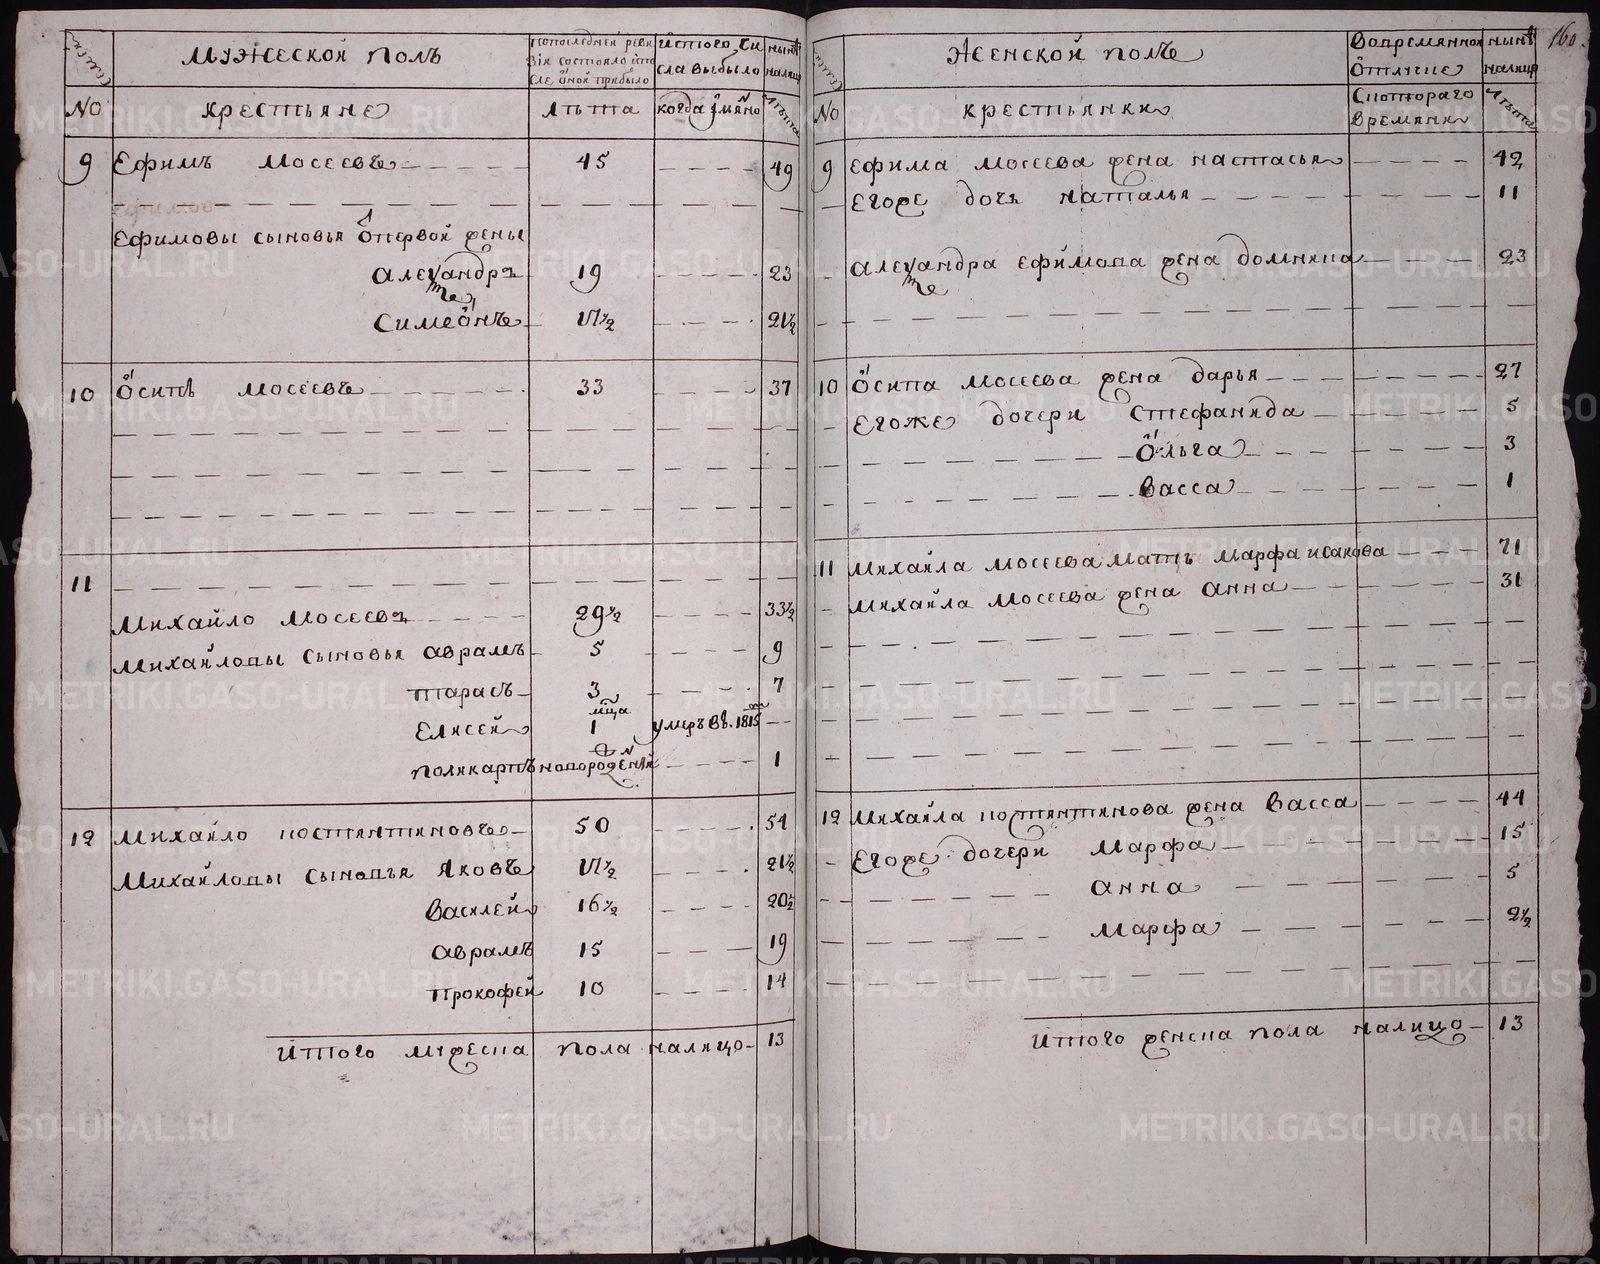 160.
Семьи
Мужеской полъ
По последней реви
зiи состояло ипо
сле оной прибыло
Истого чи
сла выбыло
ныне
налицо
No
крестьяне
лъта
когда имяно
Лъта
9 Ефимъ Мосеевъ 45 49
Ефимов
Ефимовы сыновья от первой жены
Александръ 19 23
Симеонъ 17½ 21½
10 Осипъ Мосеевъ 33 37
11
Михайло Мосеевъ 29½ 33½
Михайловы сыновья Аврамъ 5 9
Тарасъ 3 7
мца
Елисей 1 умеръ въ 1815
Поликарпъ новорожденный 1
12 Михайло костянтиновъ 50 54
Михайловы сыновья Яковъ 17½ 21½
Василей 16½ 20½
Аврамъ 15 19
Прокофей 10 14
Итого мужеска пола налицо 13
Семьи
Женской полъ
Вовремянной
отлучке
ныне
налицо
No
крестьянки
Скоторого
времяни
Лъта
9 Ефима Мосеева жена настасья 42
Егоже дочь наталья 11
Александра Ефимова жена домника 23
10 Осипа Мосеева жена дарья 27
Егоже дочери Стефанида 5
Ольга 3
Васса 1
11 Михайла Мосеева мать Марфа исакова 71
Михайла Мосеева жена Анна 31
12 Михайла костянтинова жена Васса 44
Егоже дочери Марфа 15
анна 5
Марфа 2½
Итого женска пола налицо 13
METRIKI.GASO-URAL.RU